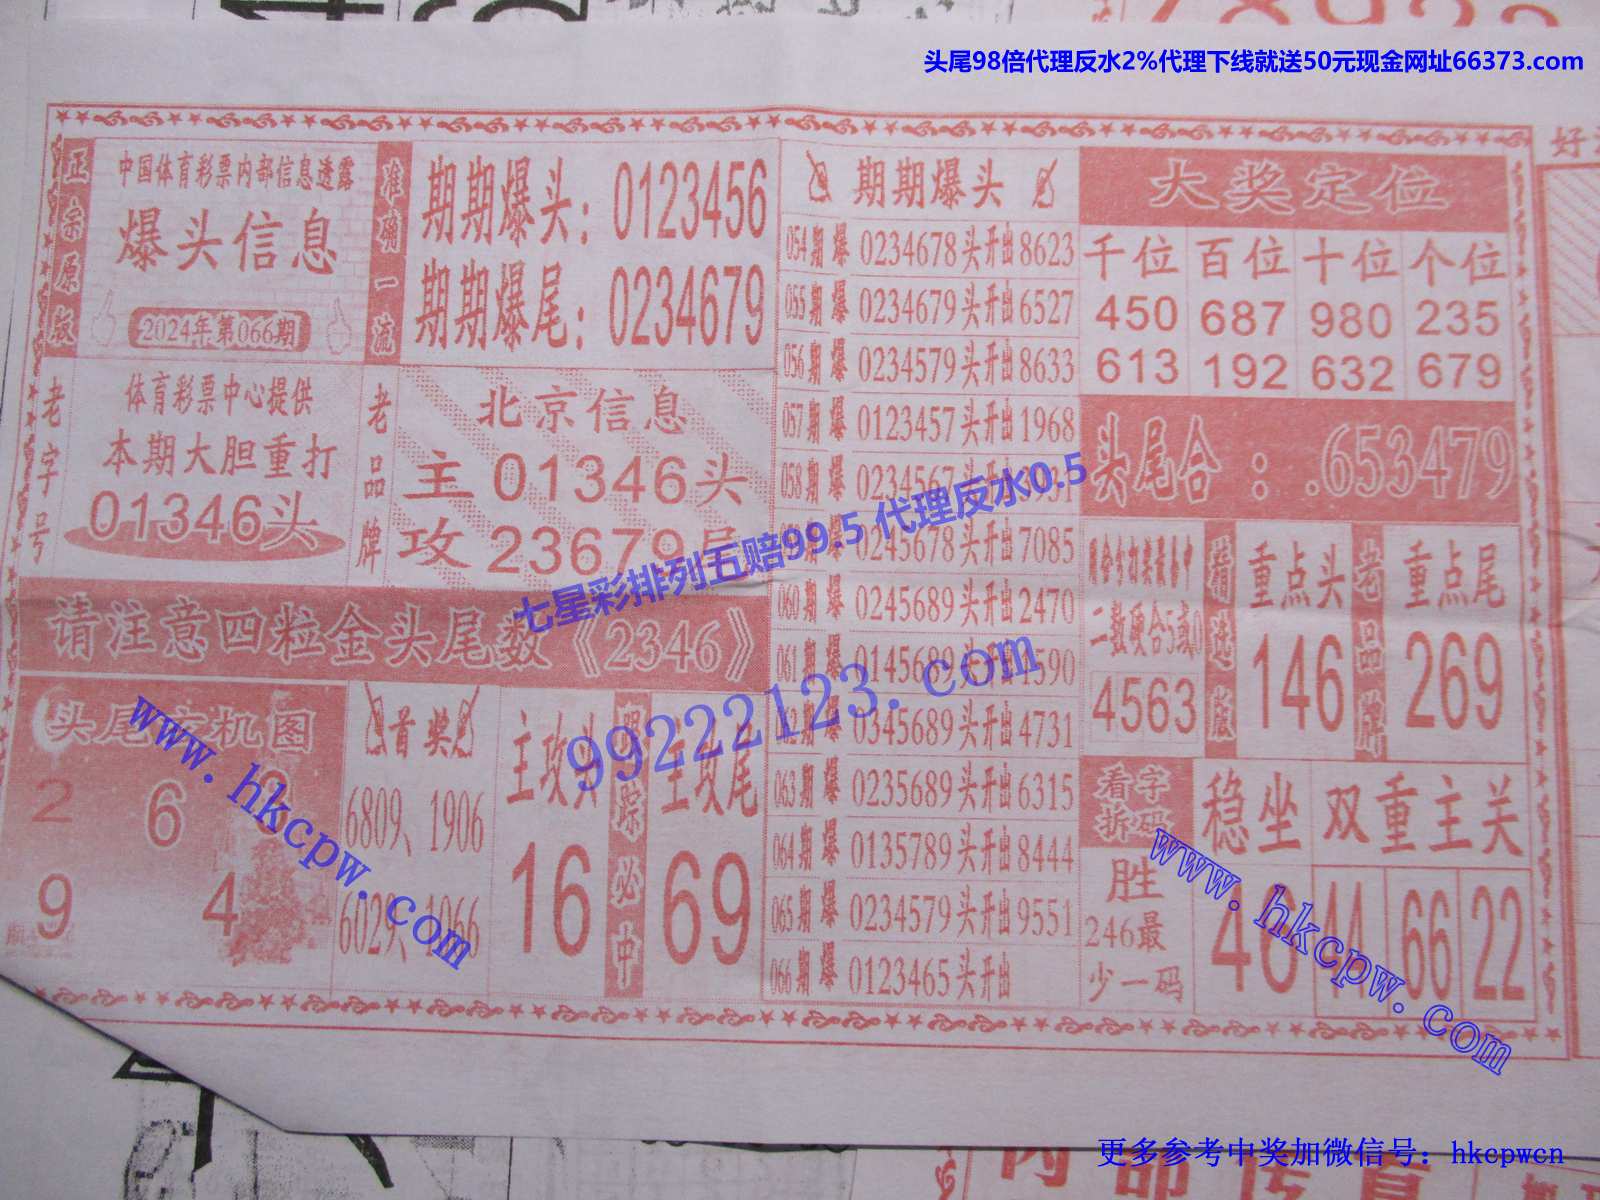 头尾98倍代理反水2%代理下线就送50元现金网址66373.com
正宗原版
中国体育彩票内部信息透露
爆头信息
2024年第066期
准确一流
期期爆头：0123456
期期爆尾：0234679
老字号
体育彩票中心提供
本期大胆重打
01346头
老品牌
北京信息
主01346头
攻23679尾
请注意四粒金头尾数《2346》
2
6
9
4
首奖
6809、1906
6029、1066
主攻头
16
必中
主攻尾
69
期期爆头
054期 爆 0234678头开出8623
055期 爆 0234679头开出6527
056期 爆 0234579头开出8633
057期 爆 0123457头开出1968
058期 爆 0234567头开出
0245678头开出7085
060期 爆 0245689头开出2470
061期 爆 0145689头开出
爆 0345689头开出4731
063期 爆 0235689头开出6315
064期 爆 0135789头开出8444
065期 爆 0234579头开出9551
066期 爆 0123465头开出
大奖定位
千位 百位 十位 个位
450 687 980 235
613 192 632 679
头尾合：.653479
二数硬合5或0
4563
重点头
146
老品牌
重点尾
269
看字拆码
胜
246最
少一码
稳坐
46
双重主关
44 66 22
七星彩排列五赔99.5 代理反水0.5
99222123.com
www.hkcpw.com
www.hkcpw.com
更多参考中奖加微信号：hkcpwcn